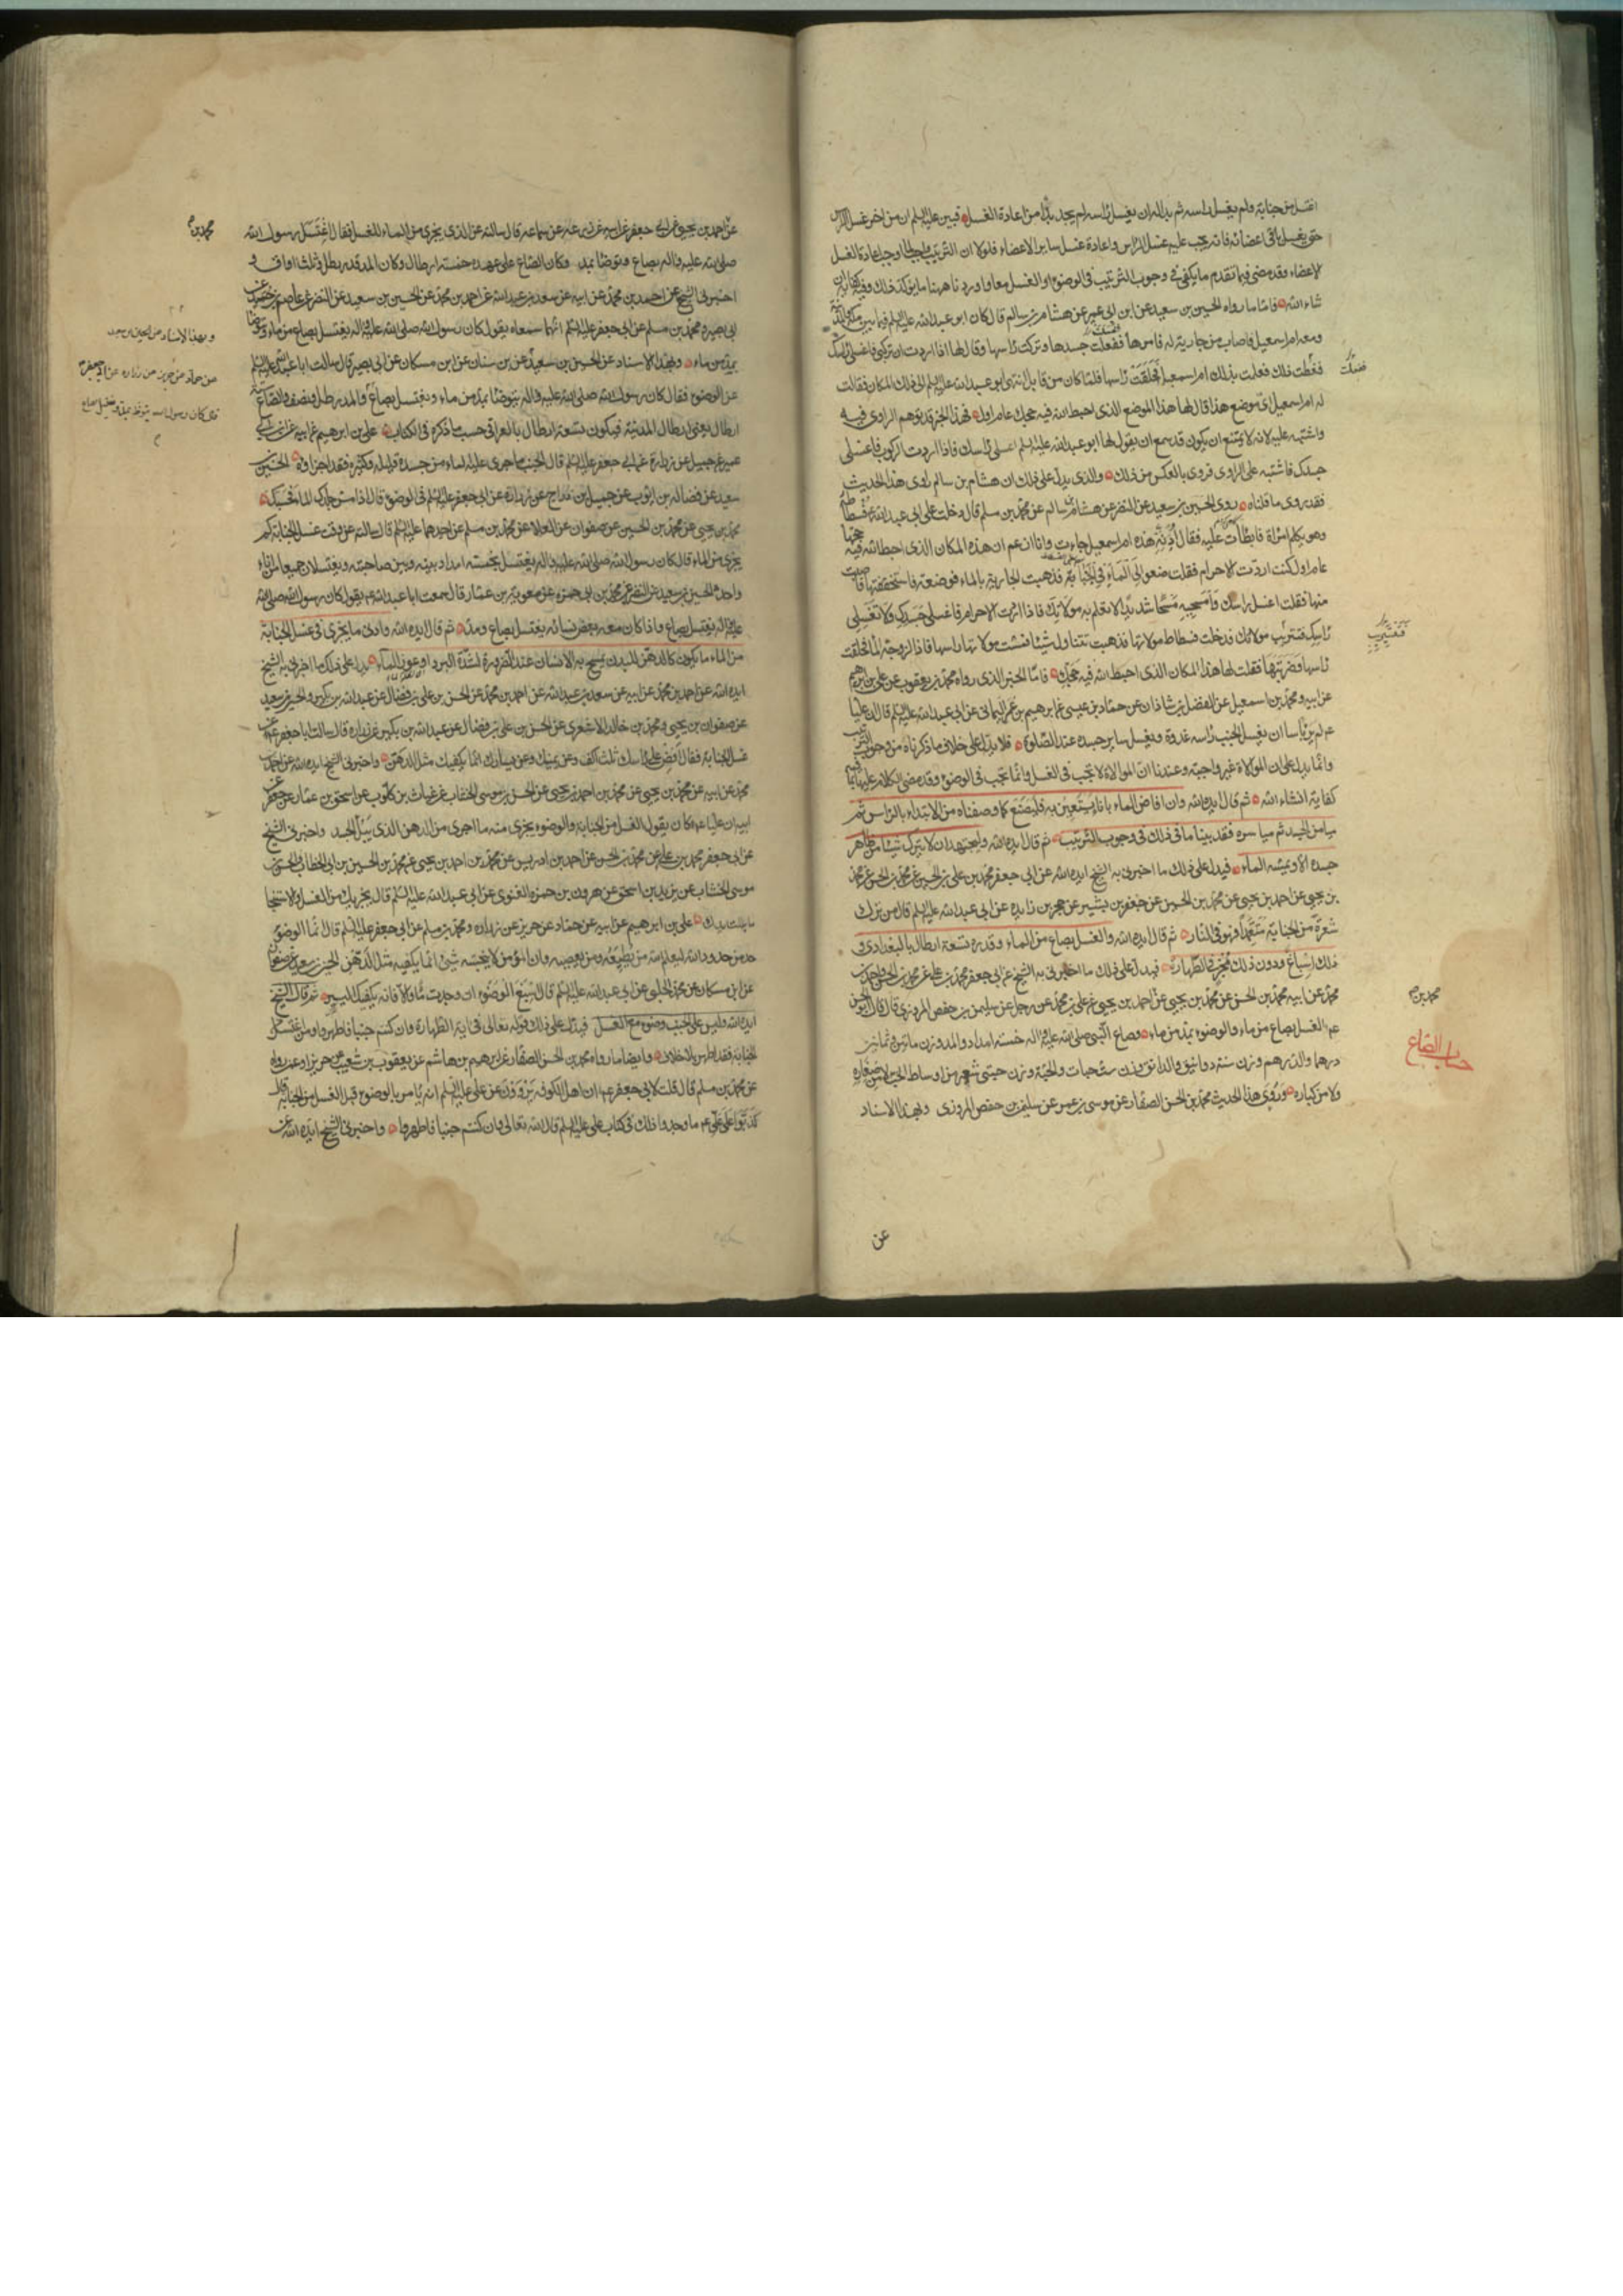 اغتسل من جنابة ولم يغسل راسه ثم بدا له ان يغسل راسه لم يجد بدا من اعادة الغسل فبين عليه السلم ان من اخر غسل الراس
حتى يغسل باقى اعضائه فانه يجب عليه غسل الراس واعادة غسل ساير الاعضاء فلولا ان الترتيب واجب لما اوجب اعادة الغسل
لاعضاء وقد مضى فيما تقدم ما يكفى فى وجوب الترتيب فى الوضوء او الغسل معا واوردنا ههنا ما يؤكد ذلك وفيه كفاية ان
شاء الله فاما ما رواه الحسين بن سعيد عن ابن ابى عمير عن هشام بن سالم قال كان ابو عبد الله عليه السلم فيما بين مكة والمدينة
ومعه ام اسمعيل فاصاب من جارية له فامرها فغسلت جسدها وتركت راسها وقال لها اذا اردت ان تركبى فاغسلى راسك
ففعلت ذلك فعلمت بذلك ام اسمعيل فحلقت راسها فلما كان من قابل انتهى ابو عبد الله عليه السلم الى ذلك المكان فقالت
له ام اسمعيل اى موضع هذا قال لها هذا الموضع الذى احبط الله فيه حجك عام اول فهذا الخبر قد يوهم الراوى فيه
واشتبه عليه لانه لا يمتنع ان يكون قد سمع ان يقول لها ابو عبد الله عليه السلم اغسلى راسك فاذا اردت الركوب فاغسلى
جسدك فاشتبه على الراوى فروى بالعكس من ذلك والذى يدل على ذلك ان هشام بن سالم راوى هذا الحديث
فقد روى ما قلناه روى الحسين بن سعيد عن النضر عن هشام بن سالم عن محمد بن مسلم قال دخلت على ابى عبد الله ع فسطاطه
وهو يكلم امراة فابطأت عليه فقال ادنه هذه ام اسمعيل جاءت وانا ازعم ان هذه المكان الذى احبط الله فيه حجها
عام اول كنت اردت الاحرام فقلت ضعوا لى الماء فى الخباء فذهبت الجارية بالماء فوضعته فاستخففتها فاصبت
منها فقلت اغسلى راسك وامسحيه مسحا شديدا لا تعلم به مولاتك فاذا اردت الاحرام فاغسلى جسدك ولا تغسلى
راسك فتستريب مولاتك فدخلت فسطاط مولاتها فذهبت تتناول شيئا فمست مولاتها راسها فاذا لزوجة الماء فحلقت
راسها وضربتها فقلت لها هذا المكان الذى احبط الله فيه حجك فاما الخبر الذى رواه محمد بن يعقوب عن على بن ابرهيم
عن ابيه ومحمد بن اسمعيل عن الفضل بن شاذان عن حماد بن عيسى عن ابرهيم بن عمر اليمانى عن ابى عبد الله عليه السلم قال ان عليا
ع لم ير بأسا ان يغسل الجنب راسه غدوة ويغسل ساير جسده عند الصلوة فلا يدل على خلاف ما ذكرناه من وجوب الترتيب
وانما يدل على ان الموالاة غير واجبة وعندنا ان الموالاة لا تجب فى الغسل وانما تجب فى الوضوء وقد مضى الكلام عليها بما فيه
كفاية انشاء الله ثم قال ايده الله وان افاض الماء باناء يستعين به فليصنع كما وصفناه من الابتداء بالراس ثم
ميامن الجسد ثم مياسره فقد بينا ما فى ذلك فى وجوب الترتيب ثم قال ايده الله وليجتهد ان لا يترك شيئا من ظاهر
جسده الا ويمسه الماء فيدل على ذلك ما اخبرنى به الشيخ ايده الله عن ابى جعفر محمد بن على بن الحسين عن محمد بن الحسن عن محمد
بن يحيى عن احمد بن يحيى عن محمد بن الحسين عن جعفر بن بشير عن حجر بن زايدة عن ابى عبد الله عليه السلم قال من ترك
شعرة من الجنابة متعمدا فهو فى النار ثم قال ايده الله والغسل بصاع من الماء وقدره تسعة ارطال بالبغدادى و
ذلك اسباغ ودون ذلك مجز فى الطهارة فيدل على ذلك ما اخبرنى به الشيخ عن ابى جعفر محمد بن على عن محمد بن الحسن واحمد بن
محمد عن ابيه محمد بن الحسن عن محمد بن يحيى عن احمد بن يحيى عن على بن محمد عن رجل عن سليمن بن حفص المروزى قال قال ابو الحسن
ع الغسل بصاع من ماء والوضوء بمد من ماء وصاع النبى صلى الله عليه واله خمسة امداد والمد وزن مائتين وثمانين
درهما والدرهم وزن ستة دوانيق والدانق وزن ست حبات والحبة وزن حبتى شعير من اوساط الحب لا من صغاره
ولا من كباره وروى هذا الحديث محمد بن الحسن الصفار عن موسى بن عمر عن سليمن بن حفص المروزى وبهذا الاسناد
فغسلت
فتستريب
محمد بن
حساب الصاع
عن
عن احمد بن يحيى عن ابى جعفر عن ابيه عن زرعة عن سماعه قال سالته عن الذى يجزى من الماء للغسل فقال اغتسل رسول الله
صلى الله عليه واله بصاع وتوضا بمد وكان الصاع على عهده خمسة ارطال وكان المد قدر رطل وثلث اواق و
اخبرنى الشيخ عن احمد بن محمد عن ابيه عن سعد بن عبد الله عن احمد بن محمد عن الحسين بن سعيد عن النضر عن عاصم بن حميد عن
ابى بصير ومحمد بن مسلم عن ابى جعفر عليه السلم انهما سمعاه يقول كان رسول الله صلى الله عليه واله يغتسل بصاع من ماء ويتوضا
بمد من ماء وبهذا الاسناد عن الحسين بن سعيد عن ابن سنان عن ابن مسكان عن ابى بصير قال سالت ابا عبد الله عليه السلم
عن الوضوء فقال كان رسول الله صلى الله عليه واله يتوضا بمد من ماء ويغتسل بصاع والمد رطل ونصف والصاع ستة
ارطال يعنى ارطال المدينة فيكون تسعة ارطال بالعراقى حسب ما ذكره فى الكتاب على بن ابرهيم عن ابيه عن ابن ابى
عمير عن جميل عن زرارة عن ابى جعفر عليه السلم قال الجنب ما جرى عليه الماء من جسده قليله وكثيره فقد اجزاه الحسين بن
سعيد عن فضالة بن ايوب عن جميل بن دراج عن زرارة عن ابى جعفر عليه السلم فى الوضوء قال اذا مس جلدك الماء فحسبك
محمد بن يحيى عن محمد بن الحسين عن صفوان عن العلا عن محمد بن مسلم عن احدهما عليه السلم قال سالته عن وقت غسل الجنابة كم
يجزى من الماء قال كان رسول الله صلى الله عليه واله يغتسل بخمسة امداد بينه وبين صاحبته ويغتسلان جميعا من اناء
واحد الحسين بن سعيد عن النضر عن محمد بن ابى حمزه عن معوية بن عمار قال سمعت ابا عبد الله ع يقول كان رسول الله صلى الله
عليه واله يغتسل بصاع واذا كان معه بعض نسائه يغتسل بصاع ومد ثم قال ايده الله وادنى ما يجزى فى غسل الجنابة
من الماء ما يكون كالدهن للبدن يمسح به الانسان عند الضرورة لشدة البرد او عوز الماء يدل على ذلك ما اخبرنى به الشيخ
ايده الله عن احمد بن محمد عن ابيه عن سعد بن عبد الله عن احمد بن محمد عن الحسن بن على بن فضال عن عبد الله بن بكير والحسين بن سعيد
عن صفوان بن يحيى ومحمد بن خالد الاشعرى عن الحسن بن على بن فضال عن عبد الله بن بكير عن زرارة قال سالت ابا جعفر ع عن
غسل الجنابة فقال افض على راسك ثلث اكف وعن يمينك وعن يسارك انما يكفيك مثل الدهن واخبرنى الشيخ ايده الله عن احمد بن
محمد عن ابيه عن محمد بن يحيى عن محمد بن احمد بن يحيى عن الحسن بن موسى الخشاب عن غياث بن كلوب عن اسحق بن عمار عن جعفر عن
ابيه ان عليا ع كان يقول الغسل من الجنابة والوضوء يجزى منه ما اجرى من الدهن الذى يبل الجسد واخبرنى الشيخ
عن ابى جعفر محمد بن على عن محمد بن الحسن عن احمد بن ادريس عن محمد بن احمد بن يحيى عن محمد بن الحسين بن ابى الخطاب والحسن بن
موسى الخشاب عن يزيد بن اسحق عن هرون بن حمزه الغنوى عن ابى عبد الله عليه السلم قال يجزيك من الغسل والاستنجا
ما بلت يدك على بن ابرهيم عن ابيه عن حماد عن حريز عن زرارة ومحمد بن مسلم عن ابى جعفر عليه السلم قال انما الوضوء
حد من حدود الله ليعلم الله من يطيعه ومن يعصيه وان المؤمن لا ينجسه شئ انما يكفيه مثل الدهن الحسين بن سعيد عن صفوان
عن ابن مسكان عن محمد الحلبى عن ابى عبد الله عليه السلم قال اسبغ الوضوء ان وجدت ماء والا فانه يكفيك اليسير ثم قال الشيخ
ايده الله وليس على الجنب وضوء مع الغسل فيدل على ذلك قوله تعالى فى اية الطهارة وان كنتم جنبا فاطهروا ومن اغتسل من
الجنابة فقد اطهر بلا خلاف وايضا ما رواه محمد بن الحسن الصفار عن ابرهيم بن هاشم عن يعقوب بن شعيب عن حريز او عمن رواه
عن محمد بن مسلم قال قلت لابى جعفر ع ان اهل الكوفه يروون عن على عليه السلم انه يامر بالوضوء قبل الغسل من الجنابة قال
كذبوا على على ع ما وجدوا ذلك فى كتاب على عليه السلم قال الله تعالى وان كنتم جنبا فاطهروا واخبرنى الشيخ ايده الله عن
محمد بن
وبهذا الاسناد عن الحسين بن سعيد
عن حماد عن حريز عن زرارة عن ابى جعفر ع
قال كان رسول الله يتوضا بمد ويغتسل بصاع